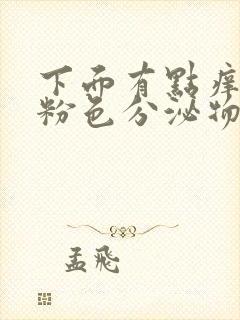 下面有點痒
粉色分泌物
孟飛